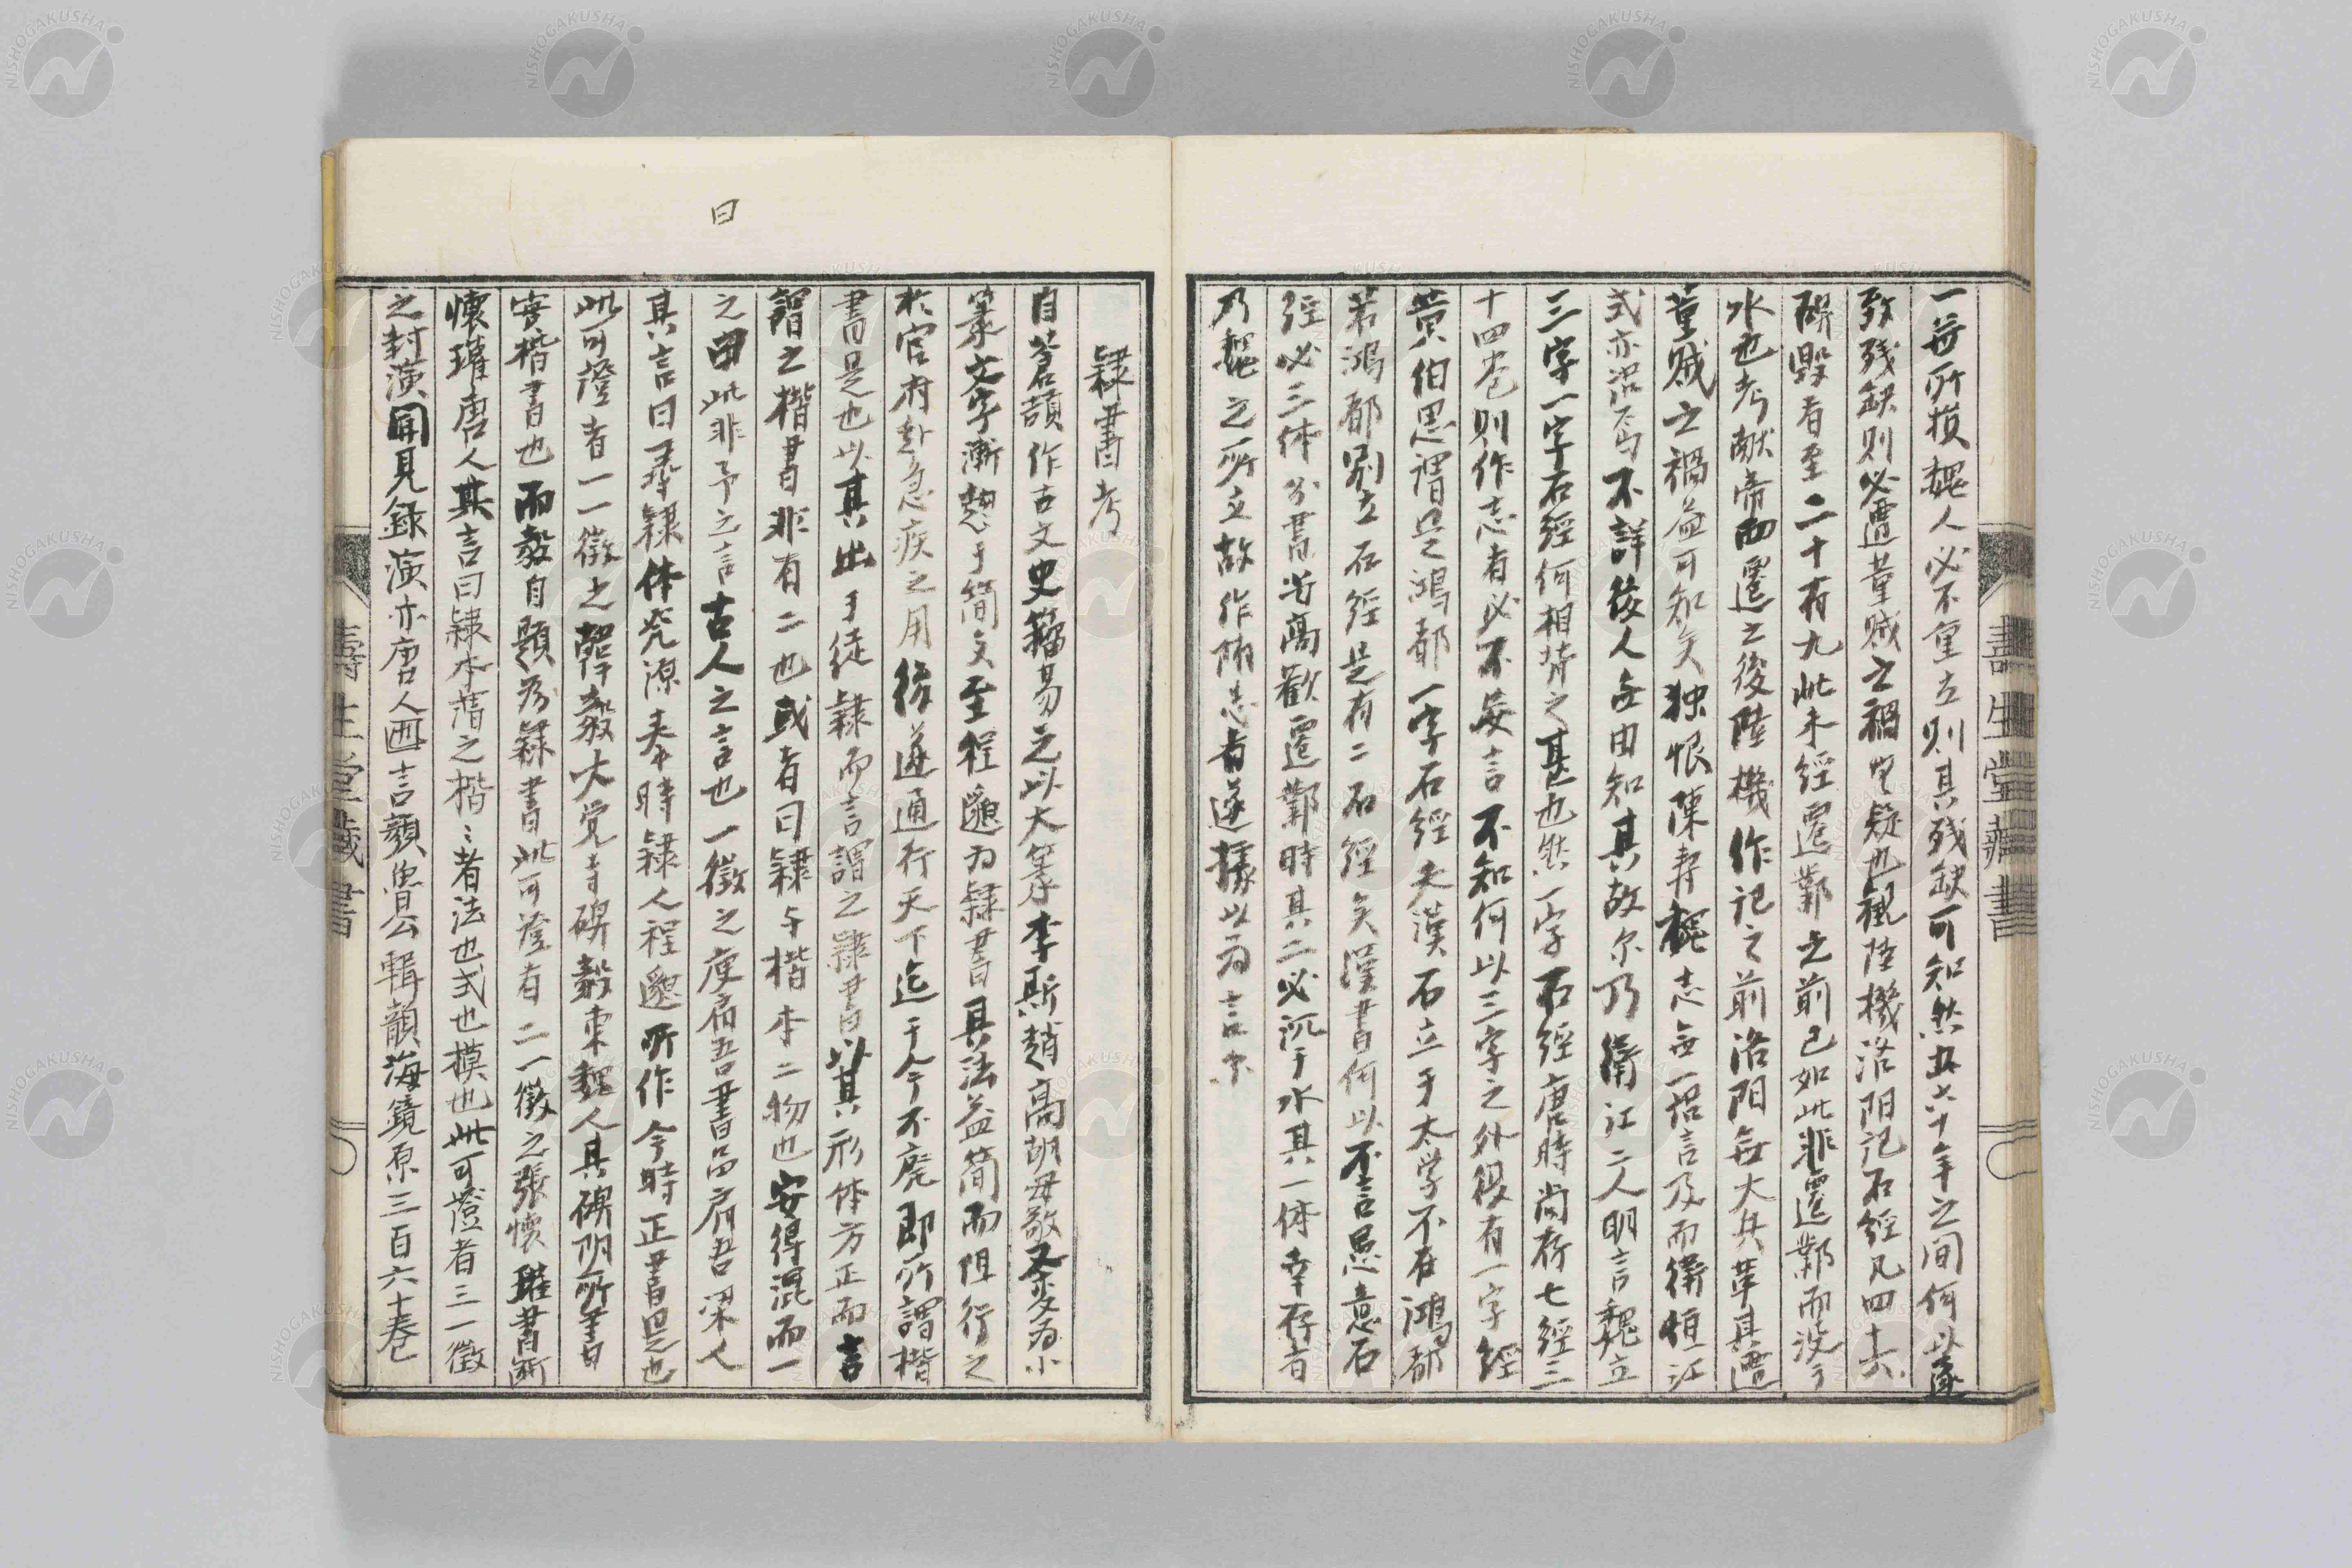 一無所損魏人必不重立則其残缺可知然五六十年之间何以遽
致残缺則必遭董贼之禍無疑也観陸機洛阳記石經凡四十六
碑毀者至二十有九此未經遷鄴之前已如此非遷鄴而没于
水也考献帝西遷之後陸機作记之前洛阳無大兵革其遭
董贼之禍益可知矣独恨陳寿魏志無一語言及而衛恒江
式亦沿焉不詳後人無由知其故尔乃衛江二人明言魏立
三字一字石經何相背之甚也然一字石經唐時尚存七經三
十四卷則作志者必不妄言不知何以三字之外復有一字經
黄伯思謂是鴻都一字石經夫漢石立于太学不在鴻都
若鴻都别立石經是有二石經矣漢書何以不言愚意石
經必三体分書当高歡遷鄴時其二必沉于水其一体幸存者
乃魏之所立故作隋志者遂據以为言尔
隷書考
自蒼頡作古文史籀易之以大篆李斯趙高胡毋敬又変为小
篆文字漸趨于簡文至程邈为隷書其法益簡而徂行之
於官府赴急疾之用後遂通行天下迄于今不廃即所謂楷
書是也以其出于徒隷而言謂之隷書以其形体方正而言
謂之楷書非有二也或者曰隷与楷本二物也安得混而一
之曰此非予之言古人之言也一徵之庾肩吾書品肩吾梁人
其言曰尋隷体究源秦時隷人程邈所作今時正書是也
此可證者一一徵之韓毅大覚寺碑毅東魏人其碑阴所書
寔楷書也而毅自題为隷書此可證者二一徵之張懐瓘書断
懐瓘唐人其言曰隷本謂之楷〻者法也式也模也此可證者三一徵
之封演聞見録演亦唐人也言顔魯公輯韻海鏡原三百六十卷
曰
壽生堂藏書
壽生堂藏書
NISHOGAKUSHA